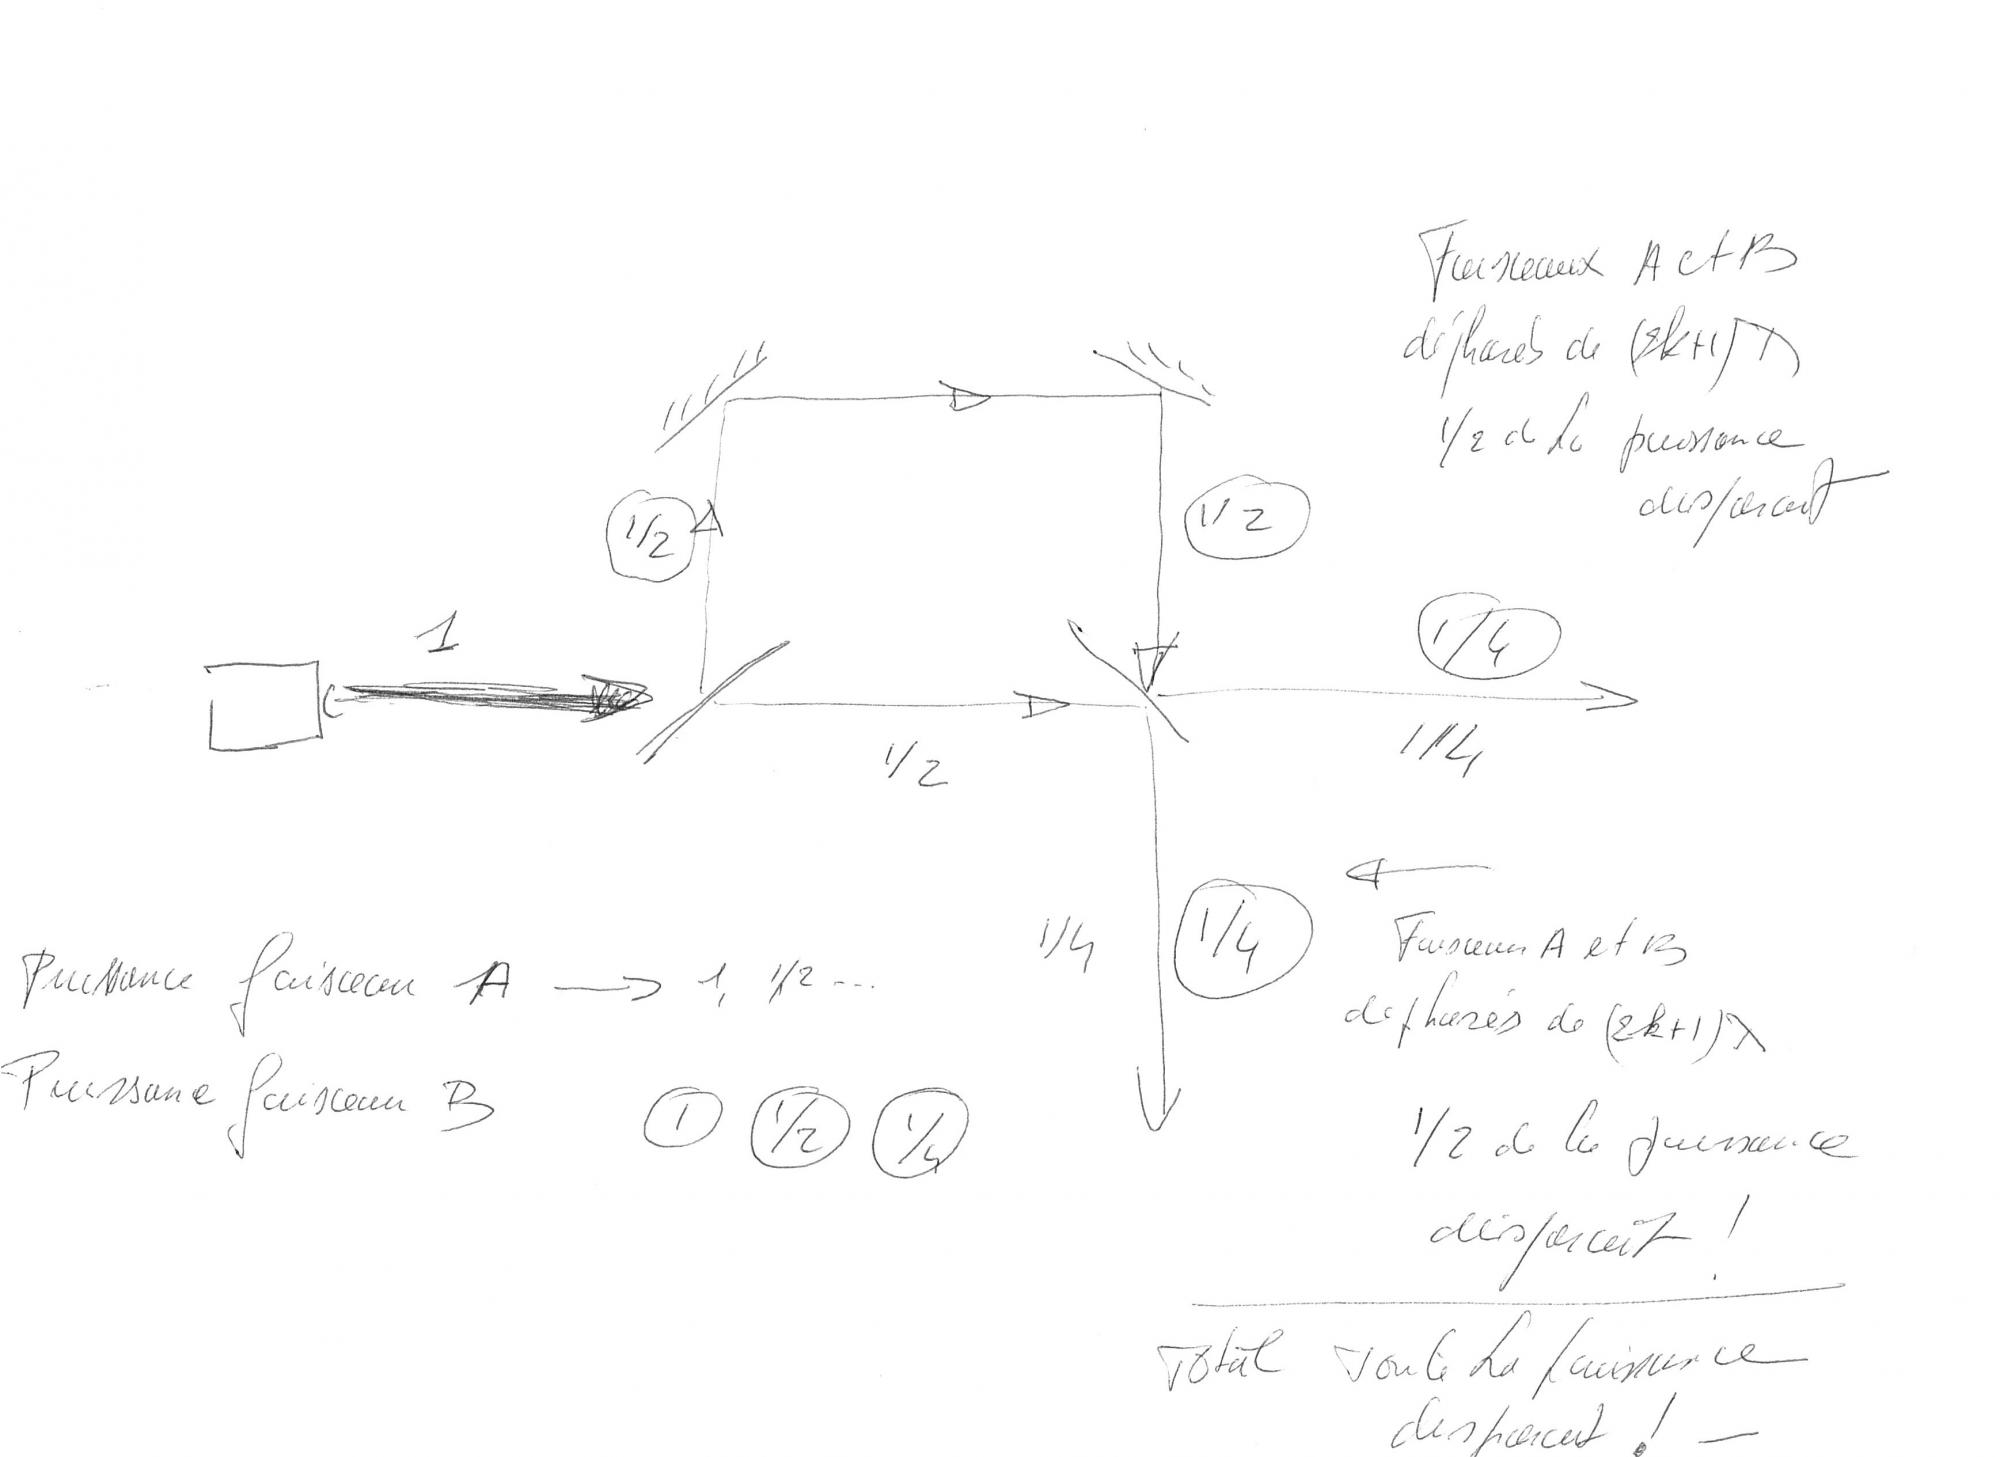 Faisceaux A et B
déphasés de (2k+1) λ
1/2 de la puissance
disparait
1/2
1/2
1
1/4
1/2
1/4
1/4
1/4
Faisceau A et B
déphasés de (2k+1) λ
1/2 de la puissance
disparaît !
Puissance faisceau A → 1, 1/2 ...
Puissance faisceau B 1 1/2 1/4
Total Toute la puissance
disparait ! –